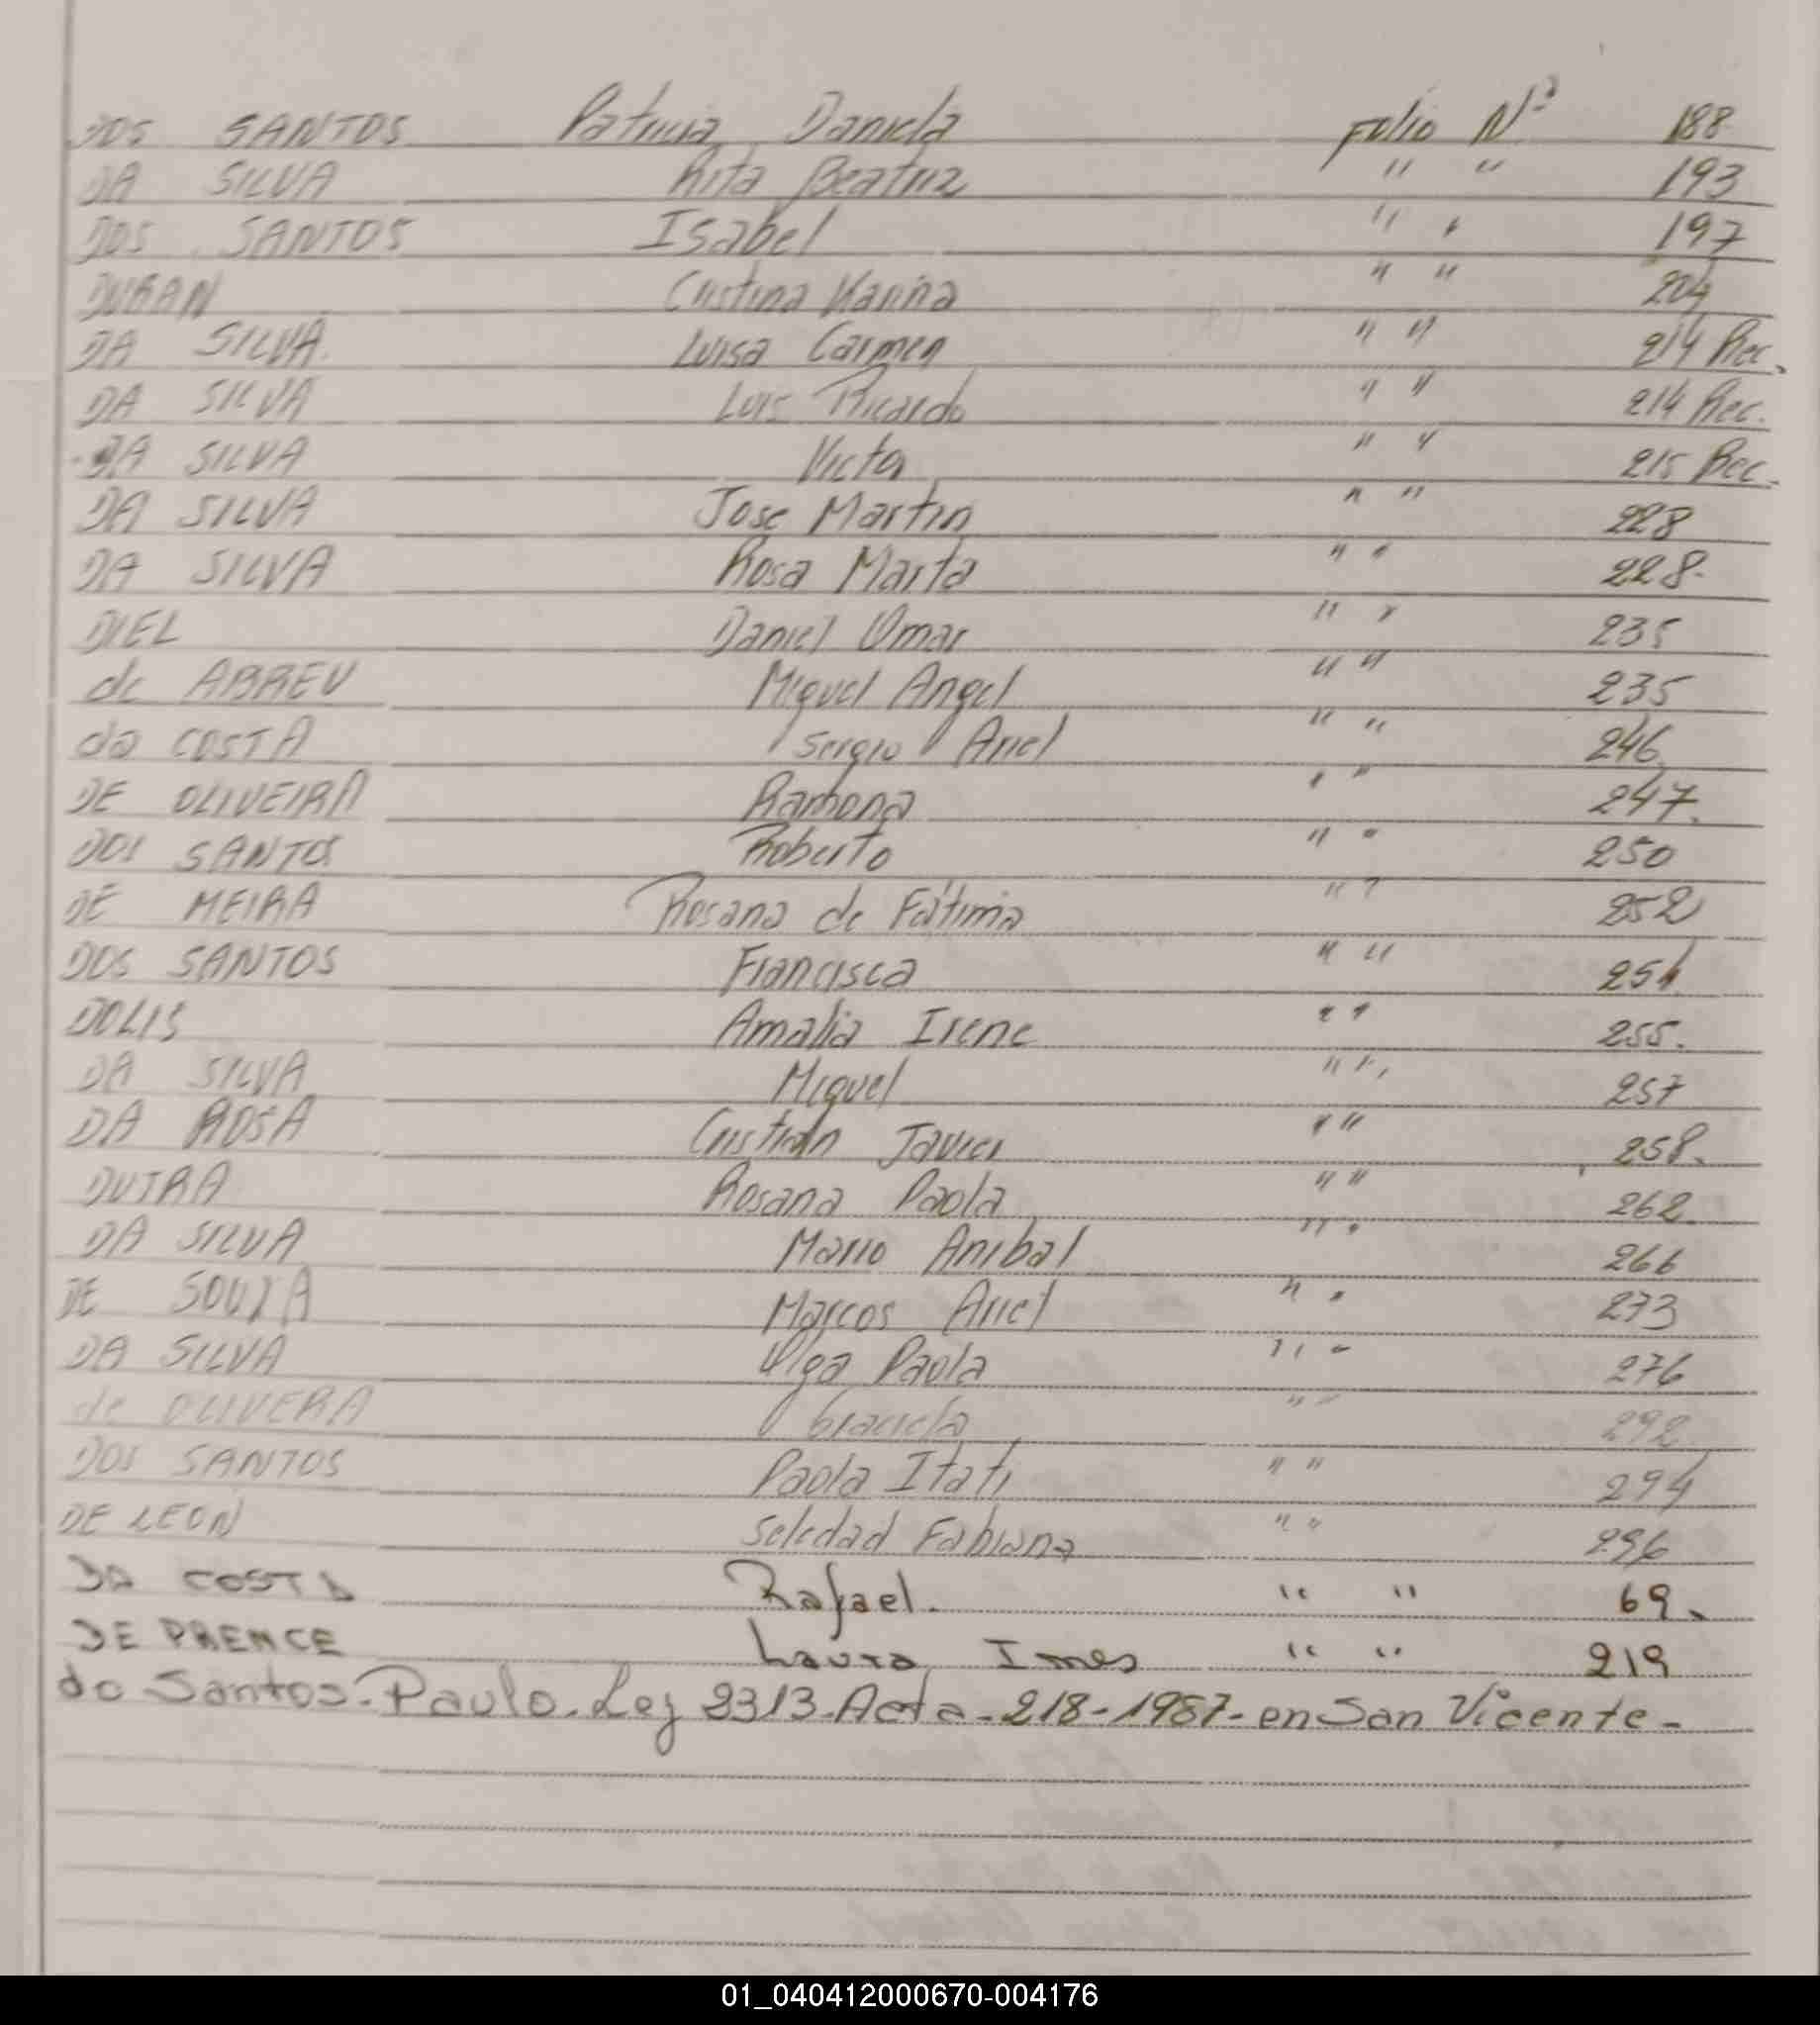 DOS SANTOS Patricia Daniela Folio Nº 188
DA SILVA Rita Beatriz " " 193
DOS SANTOS Isabel " " 197
DURAN Cristina Karina " " 204
DA SILVA Luisa Carmen " " 214 Rec.
DA SILVA Luis Ricardo " " 214 Rec.
DA SILVA Victor " " 215 Rec.
DA SILVA Jose Martin " " 228
DA SILVA Rosa Marta " " 228.
DIEL Daniel Omar " " 235
de ABREU Miguel Angel " " 235
da COSTA Sergio Ariel " " 246
DE OLIVEIRA Ramona " " 247.
DOS SANTOS Roberto " " 250
DE MEIRA Rosana de Fátima " " 252
DOS SANTOS Francisca " " 254
DOLIS Amalia Irene " " 255.
DA SILVA Miguel " " 257
DA ROSA Cristian Javier " " 258.
DUTRA Rosana Paola " " 262
DA SILVA Mario Anibal " " 266
DE SOUZA Marcos Ariel " " 273
DA SILVA Olga Paola " " 276
de OLIVERA Graciela " " 292
DOS SANTOS Paola Itati " " 294
DE LEON Soledad Fabiana " " 296
DA COSTA Rafael. " " 69.
DE PRENCE Laura Ines " " 219
do Santos-Paulo-Ley 2313-Acta-218-1987-en San Vicente-
01_040412000670-004176